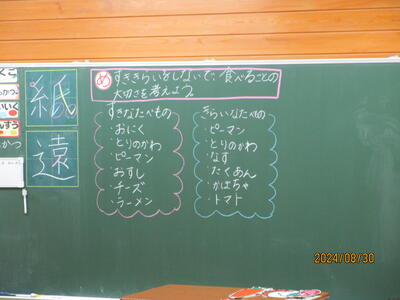 め
すききらいをしないで、食べることの
大切さを考えよう。
紙
遠
すきなたべもの
・おにく
・とりのかわ
・ピーマン
・おすし
・チーズ
・ラーメン
きらいなたべもの
・ピーマン
・とりのかわ
・なす
・たくあん
・かぼちゃ
・トマト
2024/08/30